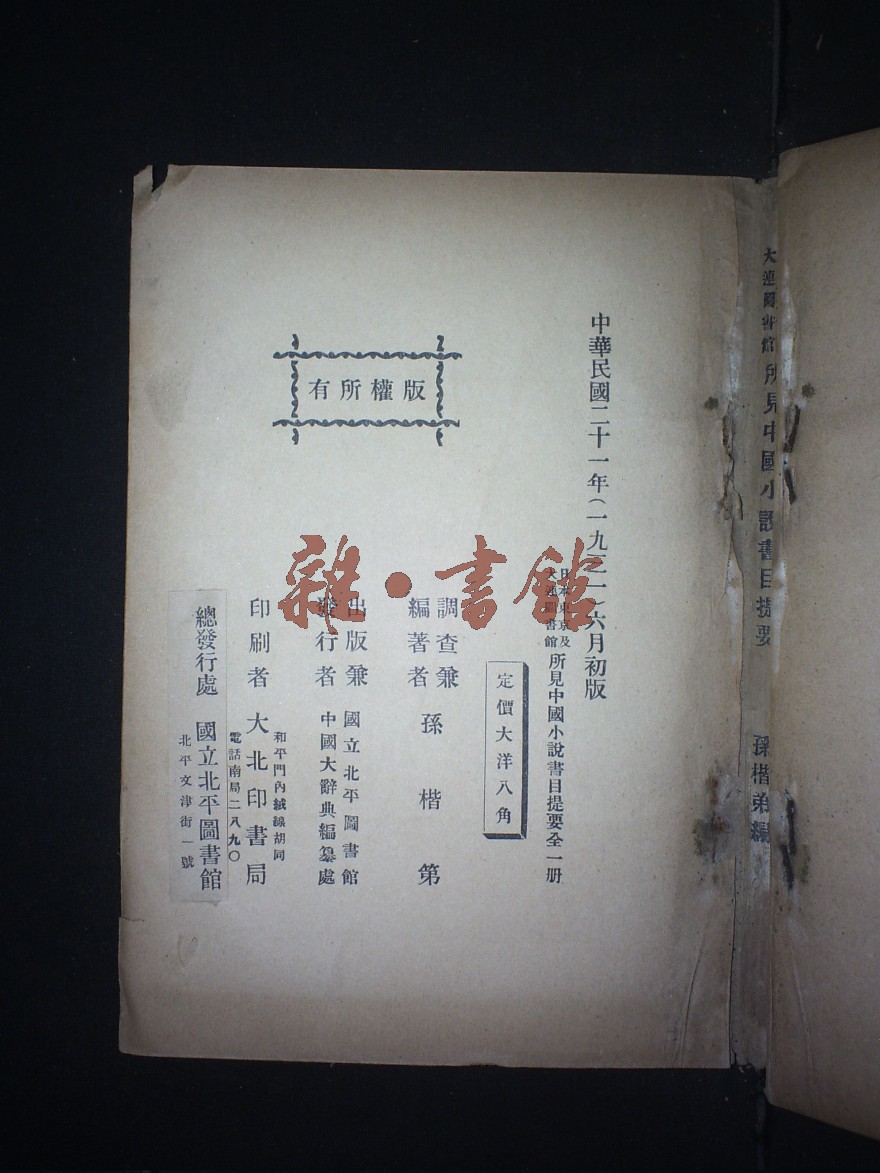 大連圖書館所見中國小說書目提要
孫楷第編
中華民國二十一年（一九三二）六月初版
日本東京及
大連圖書館
所見中國小說書目提要全一册
定價大洋八角
調查兼
編著者
孫楷第
出版兼
發行者
國立北平圖書館
中國大辭典編纂處
印刷者
大北印書局
和平門內絨線胡同
電話南局二八九〇
總發行處
國立北平圖書館
北平文津街一號
有所權版
雜·書館